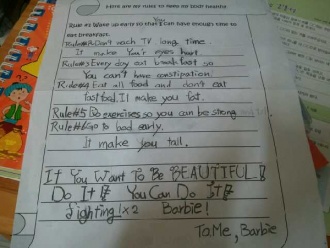 There are my rules to keep my body healthy.
You
Rule #1 Wake up early so that I can have enough time to
eat breakfast.
Rule #2 Don't watch TV long time.
It make Your eyes heart.
Rule #3 Every day eat breakfast so
You can't have constipation!
Rule #4 Eat all food and don't eat
fastfood. It make you fat.
Rule #5 Do exercises so you can be strong
Rule #6 Go to bad early.
It make you tall.
If You Want To Be BEAUTIFUL!
Do It! You Can Do It!
Fighting! x2 Barbie!
To Me, Barbie